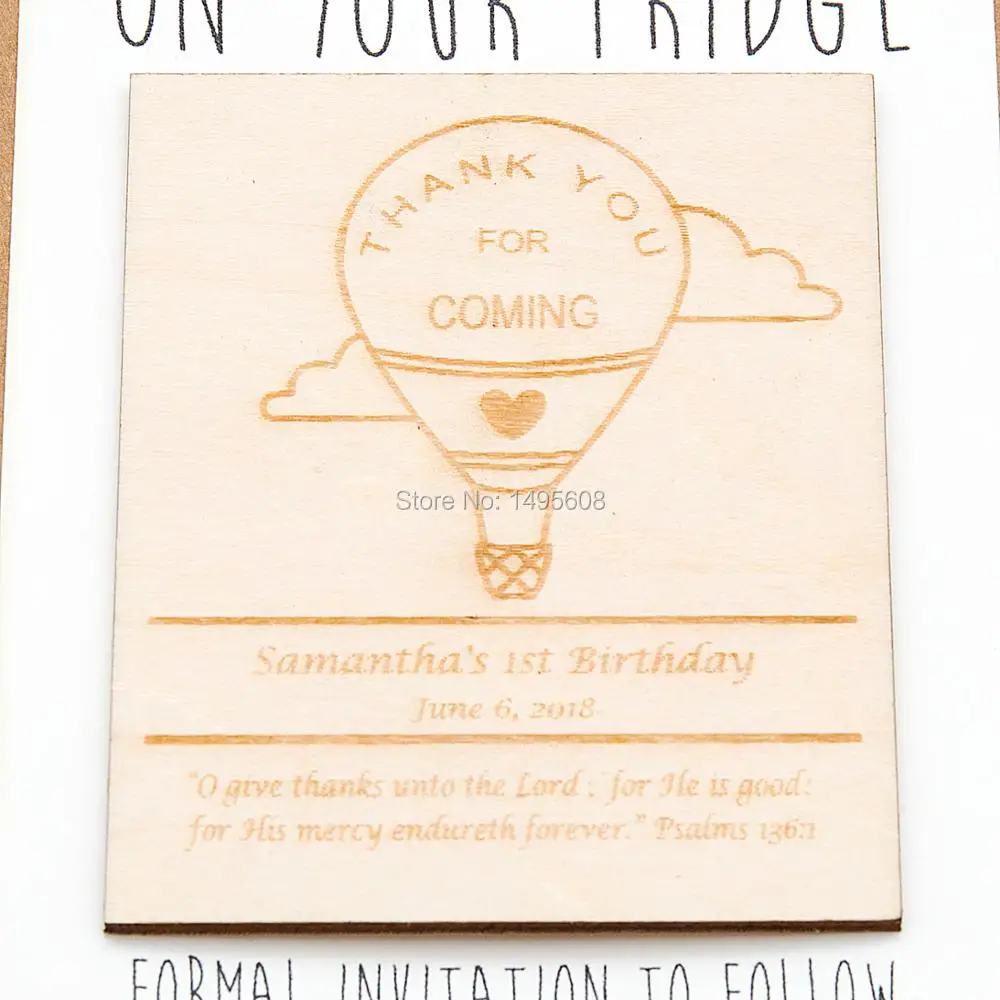 ON YOUR FRIDGE
THANK YOU
FOR
COMING
Store No: 1495608
Samantha's 1st Birthday
June 6, 2018
"O give thanks unto the Lord ; for He is good:
for His mercy endureth forever." Psalms 136:1
FORMAL INVITATION TO FOLLOW